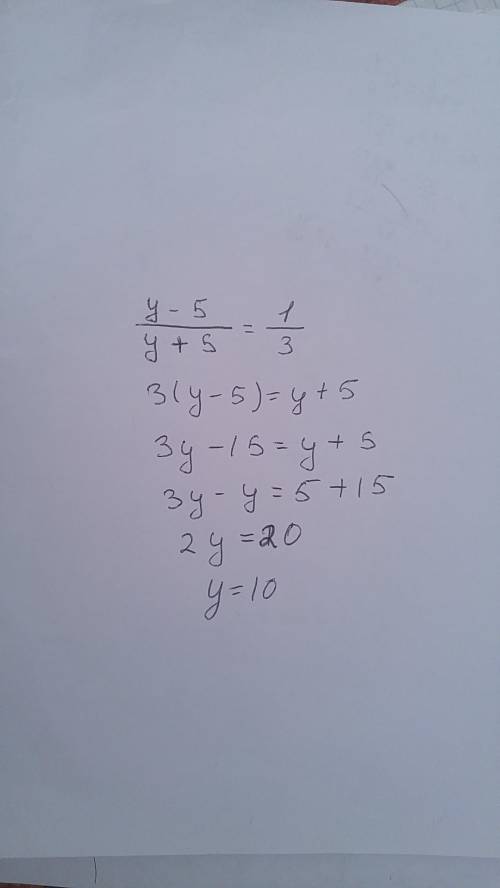 y - 5 / y + 5 = 1 / 3
3(y - 5) = y + 5
3y - 15 = y + 5
3y - y = 5 + 15
2y = 20
y = 10